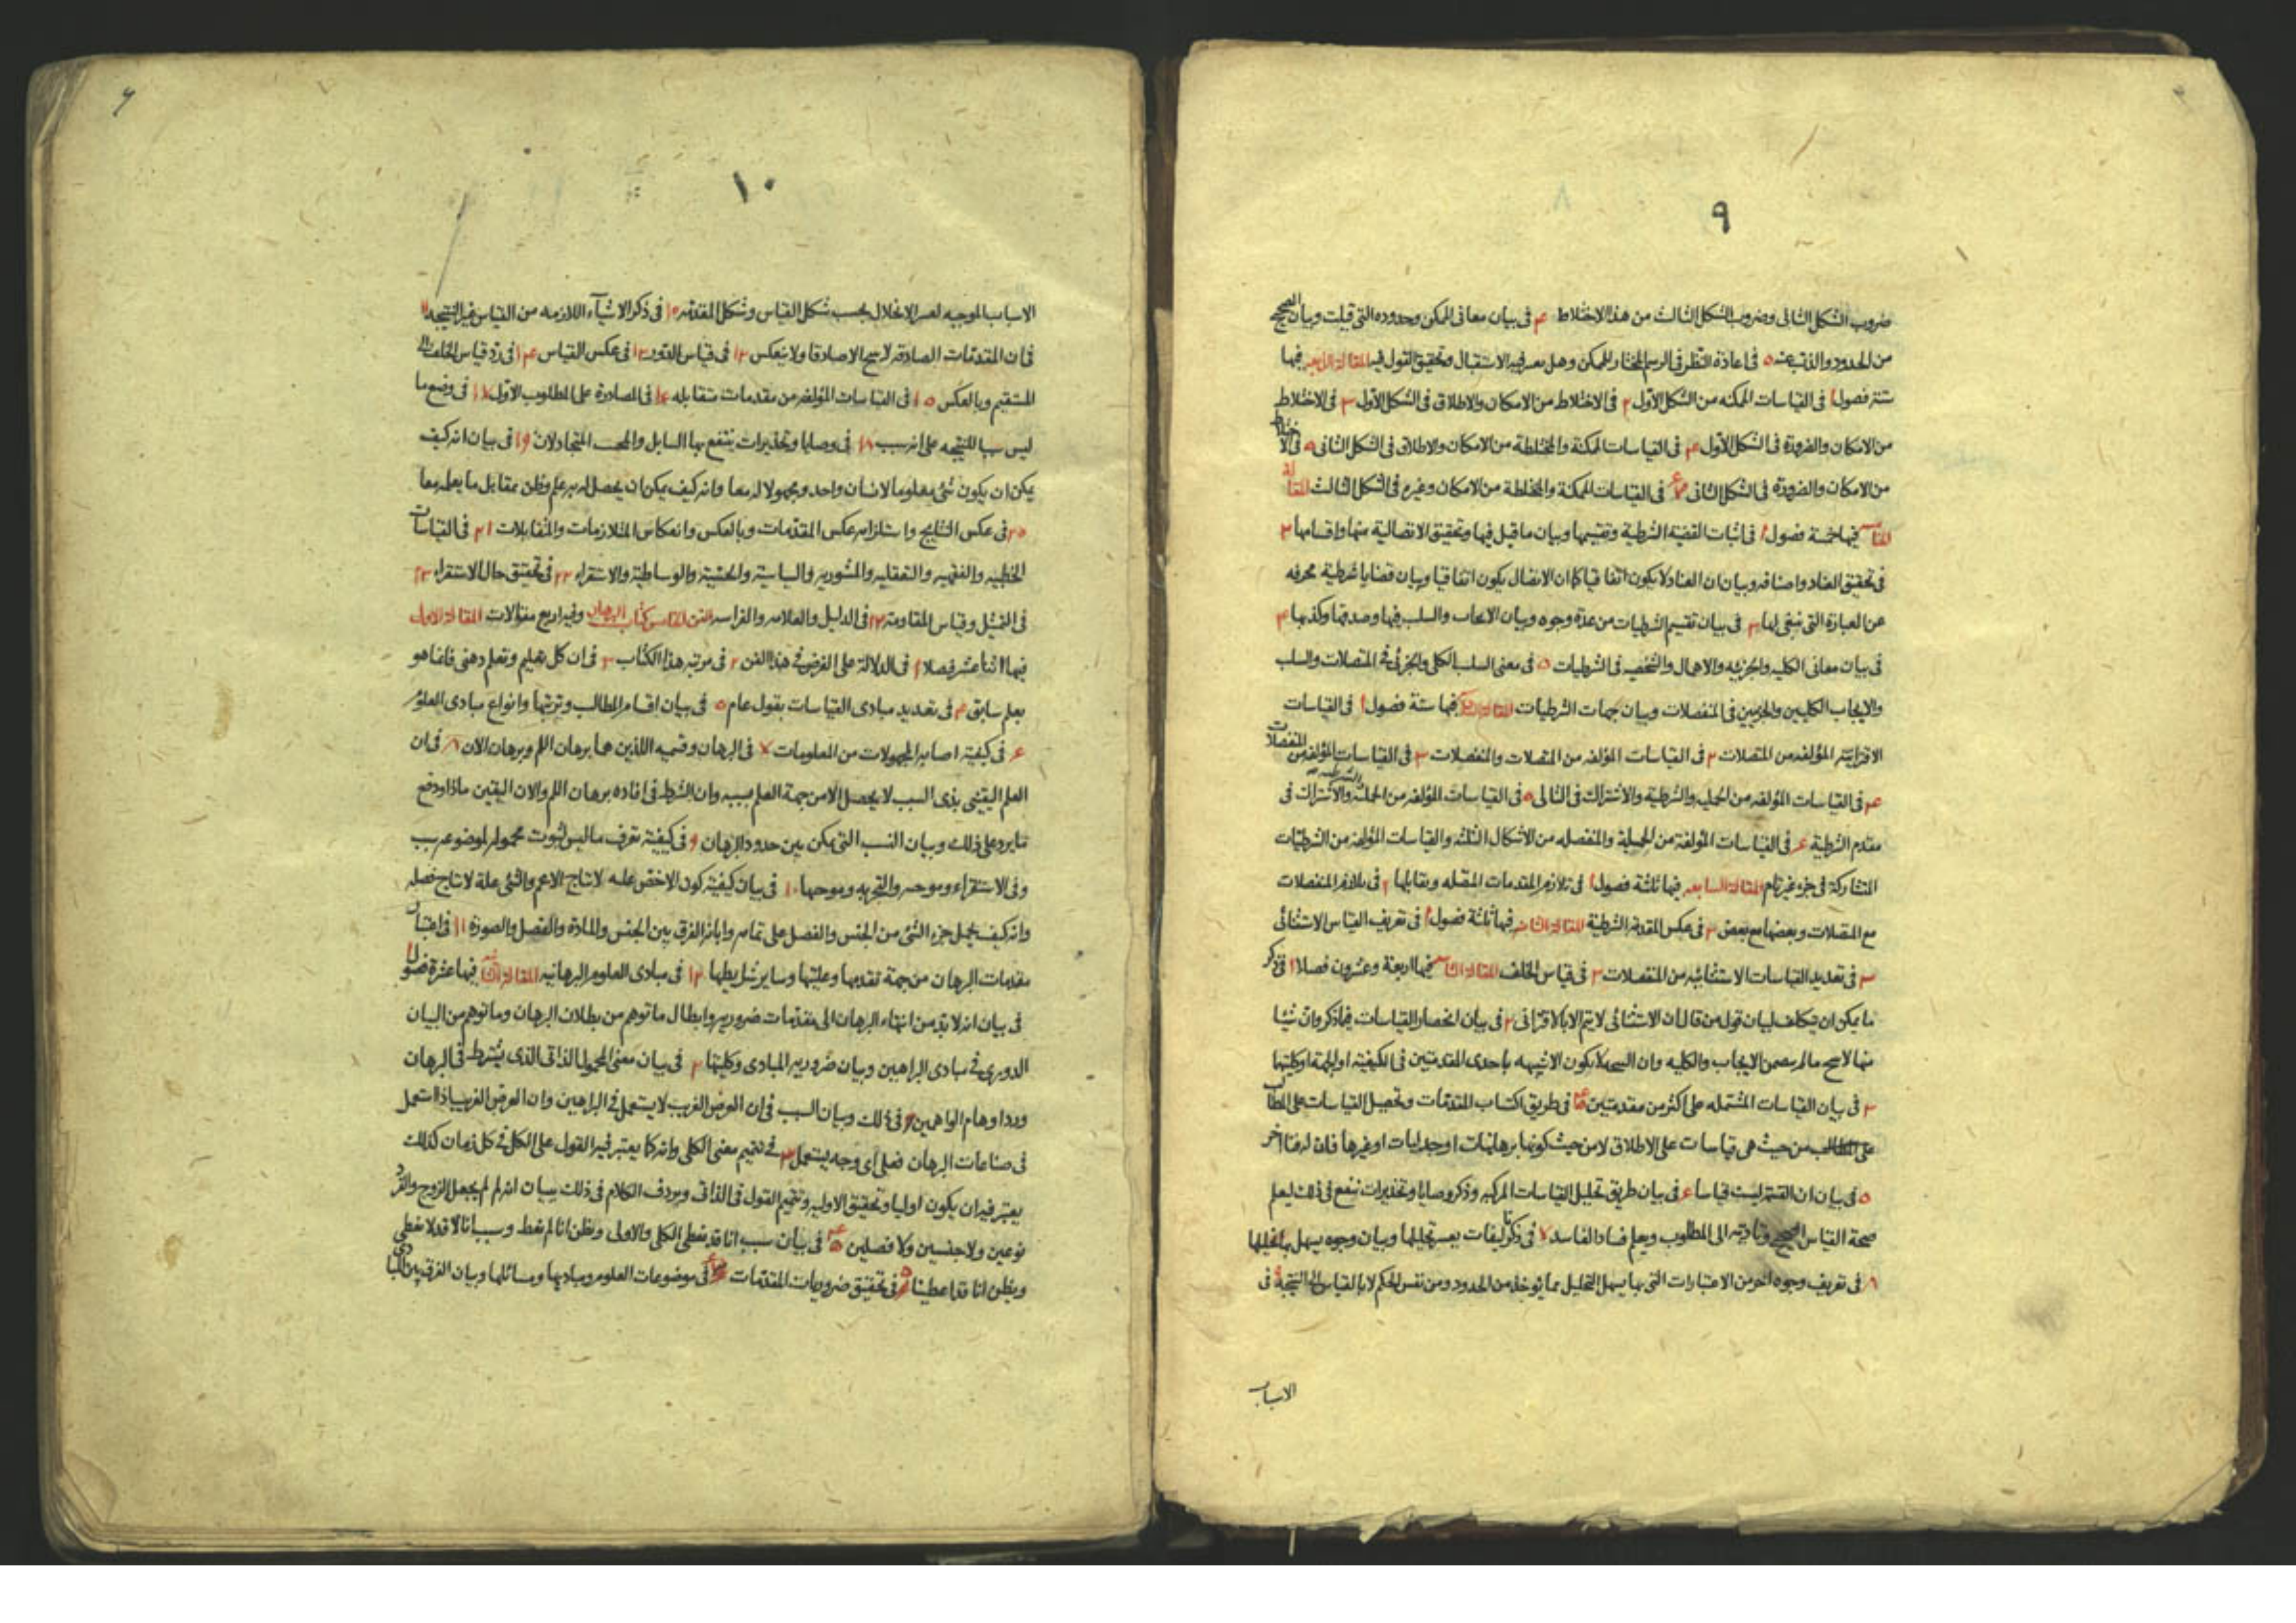 ٩
ضروب الشكل الثانى وضروب الشكل الثالث من هذا الاختلاط ۴ فى بيان معانى الممكن وحدوده التى قيلت وبيان الصحيح
من الحدود والذب عنه ۵ فى اعادة النظر فى الرسم المختار للممكن وهل معـ فيه الاستقبال وتحقيق القول فيه المقالة الرابعه فيها
ستة فصول ا فى القياسات الممكنه من الشكل الاول ٢ فى الاختلاط من الامكان والاطلاق فى الشكل الاول ٣ فى الاختلاط
من الامكان والضرورة فى الشكل الاول ۴ فى القياسات الممكنة والمختلطة من الامكان والاطلاق فى الشكل الثانى ۵ فى الاختلاط
من الامكان والضرورة فى الشكل الثانى ۶ فى القياسات الممكنة والمختلطة من الامكان وغيره فى الشكل الثالث المقالة
الخامسه فيها خمسة فصول ا فى اثبات القضية الشرطية وتقسيمها وبيان ما قيل فيها وتحقيق الاتصالية منها واقسامها ٢
فى تحقيق العناد واصنافه وبيان ان العناد لا يكون اتفاقيا كما ان الاتصال يكون اتفاقيا وبيان قضايا شرطية محرفه
عن العبارة التى ينبغى لها ٣ فى بيان تقسيم الشرطيات من عدة وجوه وبيان الايجاب والسلب فيها وصدقها وكذبها ۴
فى بيان معانى الكليه والجزئيه والاهمال والشخصيه فى الشرطيات ۵ فى معنى السلب الكلى والجزئى فى المتصلات والسلب
والايجاب الكليين والجزءيين فى المنفصلات وبيان جهات الشرطيات المقالة السادسه فيها ستة فصول ا فى القياسات
الاقترانيه المؤلفه من المتصلات ٢ فى القياسات المؤلفه من المتصلات والمنفصلات ٣ فى القياسات المؤلفه من المنفصلات
۴ فى القياسات المؤلفه من الحمليه والشرطية والاشتراك فى التالى ۵ فى القياسات المؤلفه من الحمليه والشرطيه والاشتراك فى
مقدم الشرطية ۶ فى القياسات المؤلفة من الحملية والمنفصله من الاشكال الثلثه والقياسات المؤلفه من الشرطيات
المتشاركة فى جزء غير تام المقالة السابعه فيها ثلثة فصول ا فى تلازم المقدمات المتصله وتقابلها ٢ فى تلازم المنفصلات
مع المتصلات وبعضها مع بعض ٣ فى عكس المقدمة الشرطية المقالة الثامنه فيها ثلثة فصول ا فى تعريف القياس الاستثنائى
٢ فى تعديد القياسات الاستثنائيه من المنفصلات ٣ فى قياس الخلف المقالة التاسعه فيها اربعة وعشرون فصلا ا فى ذكر
ما يمكن ان يتكلف لبيان قول من قال ان الاستثنائى لا يتم الا بالاقترانى ٢ فى بيان انحصار القياسات فيما ذكر وان شيئا
منها لا ينتج ما لم يتضمن الايجاب والكليه وان النتيجه لا يكون الا شبيهه باحدى المقدمتين فى الكيفيه او الجهة او كليتها
٣ فى بيان القياسات المشتمله على اكثر من مقدمتين ۴ فى طريق اكتساب المقدمات وتحصيل القياسات على المطالب
من حيث هى قياسات على الاطلاق لا من حيث كونها برهانيات او جدليات او غيرها فان له فنا اخر
۵ فى بيان ان القسمة ليست قياسا ۶ فى بيان طريق تحليل القياسات المركبه وذكر وصايا وتحذيرات تنفع فى ذلك ليعلم
صحة القياس الصحيح وتأديته الى المطلوب ويعلم فساد الفاسد ٧ فى ذكر تاليفات يعسر تحليلها وبيان وجوه يسهل بها تحليلها
٨ فى تعريف وجوه اخر من الاعتبارات التى بها يسهل التحليل مما يؤخذ من الحدود ومن نفس الحكم لا بالقياس الى النتيجة ٩ فى
الاسباب
١٠
الاسباب الموجبه لعسر الانحلال بحسب شكل القياس وشكل المقدمه ١٠ فى ذكر الاشياء اللازمه من القياس غير النتيجه ١١
فى ان المقدمات الصادقه لا ينتج الا صادقا ولا ينعكس ١٢ فى قياس الدور ١٣ فى عكس القياس ١۴ فى رد قياس الخلف الى
المستقيم وبالعكس ١۵ فى القياسات المؤلفه من مقدمات متقابله ١۶ فى المصادرة على المطلوب الاول ١٧ فى وضع ما
ليس سببا للنتيجه على انه سبب ١٨ فى وصايا وتحذيرات ينتفع بها السايل والمجيب المتجادلان ١٩ فى بيان انه كيف
يمكن ان يكون شئ معلوما لانسان واحد ومجهولا له معا وانه كيف يمكن ان يحصل له به علم وظن بمقابل ما يعلمه معا
٢٠ فى عكس النتايج واستلزامه عكس المقدمات وبالعكس وانعكاس المتلازمات والمتقابلات ٢١ فى القياسات
الخطبيه والفقهيه والتعقليه والمشوريه والسياسية والحسّية والوساطيّة والاستقراء ٢٢ فى تحقيق حال الاستقراء ٢٣
فى التمثيل وقياس المقاومة ٢۴ فى الدليل والعلامه والفراسه الفن الخامس كتاب البرهان وفيه اربع مقالات المقالة الاولى
فيها اثنا عشر فصلا ا فى الدلالة على الغرض فى هذا الفن ٢ فى مرتبه هذا الكتاب ٣ فى ان كل تعليم وتعلم ذهنى فانما هو
بعلم سابق ۴ فى تعديد مبادى القياسات بقول عام ۵ فى بيان اقسام المطالب وترتبها وانواع مبادى العلوم
۶ فى كيفية اصابه المجهولات من المعلومات ٧ فى البرهان وقسميه اللذين هما برهان اللم وبرهان الان ٨ فى ان
العلم اليقينى بذى السبب لا يحصل الا من جهة العلم بسببه وان الشرط فى افاده برهان اللم والان اليقين ماذا ودفع
ما يرد على ذلك وبيان النسب التى يمكن بين حدود البرهان ٩ فى كيفية تعرف ما ليس لثبوت محموله لموضوعه سبب
وفى الاستقراء وموجبه والتجربه وموجبها ١٠ فى بيان كيفية كون الاخص علـه لانتاج الاعم والشئ علة لانتاج فصله
وانه كيف يحمل جزء الشئ من الجنس والفصل على تمامه وابانة الفرق بين الجنس والمادة والفصل والصورة ١١ فى اعتبار
مقدمات البرهان من جهة تقدمها وعليتها وساير شرايطها ١٢ فى مبادى العلوم البرهانيه المقالة الثانيه فيها عشرة فصول ا
فى بيان انه لا بد من انتهاء البرهان الى مقدمات ضروريه وابطال ما توهم من بطلان البرهان وما توهم من البيان
الدورى فى مبادى البراهين وبيان ضروريه المبادى وكليتها ٢ فى بيان معنى المحمول الذاتى الذى يشترط فى البرهان
ورد اوهام الواهمين فى ذلك وبيان السبب فى ان العرض الغريب لا يستعمل فى البراهين وان العرض الغريب اذا استعمل
فى صناعات البرهان فعلى اى وجه يستعمل ٣ فى تتميم معنى الكلى وانه كما يعتبر فيه القول على الكل فى كل زمان كذلك
يعتبر فيه ان يكون اوليا وتحقيق الاوليه وتتميم القول فى الذاتى ويردف الكلام فى ذلك ببيان انه لم لم يجعل الزوج والفرد
نوعين ولا جنسين ولا فصلين ۴ فى بيان سبب انا قد نعطى الكلى والاولى ونظن انا لم نعط وسبب انا لا قد لا نعطى
ونظن انا قد اعطينا ۵ فى تحقيق ضروريات المقدمات ۶ فى موضوعات العلوم ومباديها ومسائلها وبيان الفرق بين المبادى